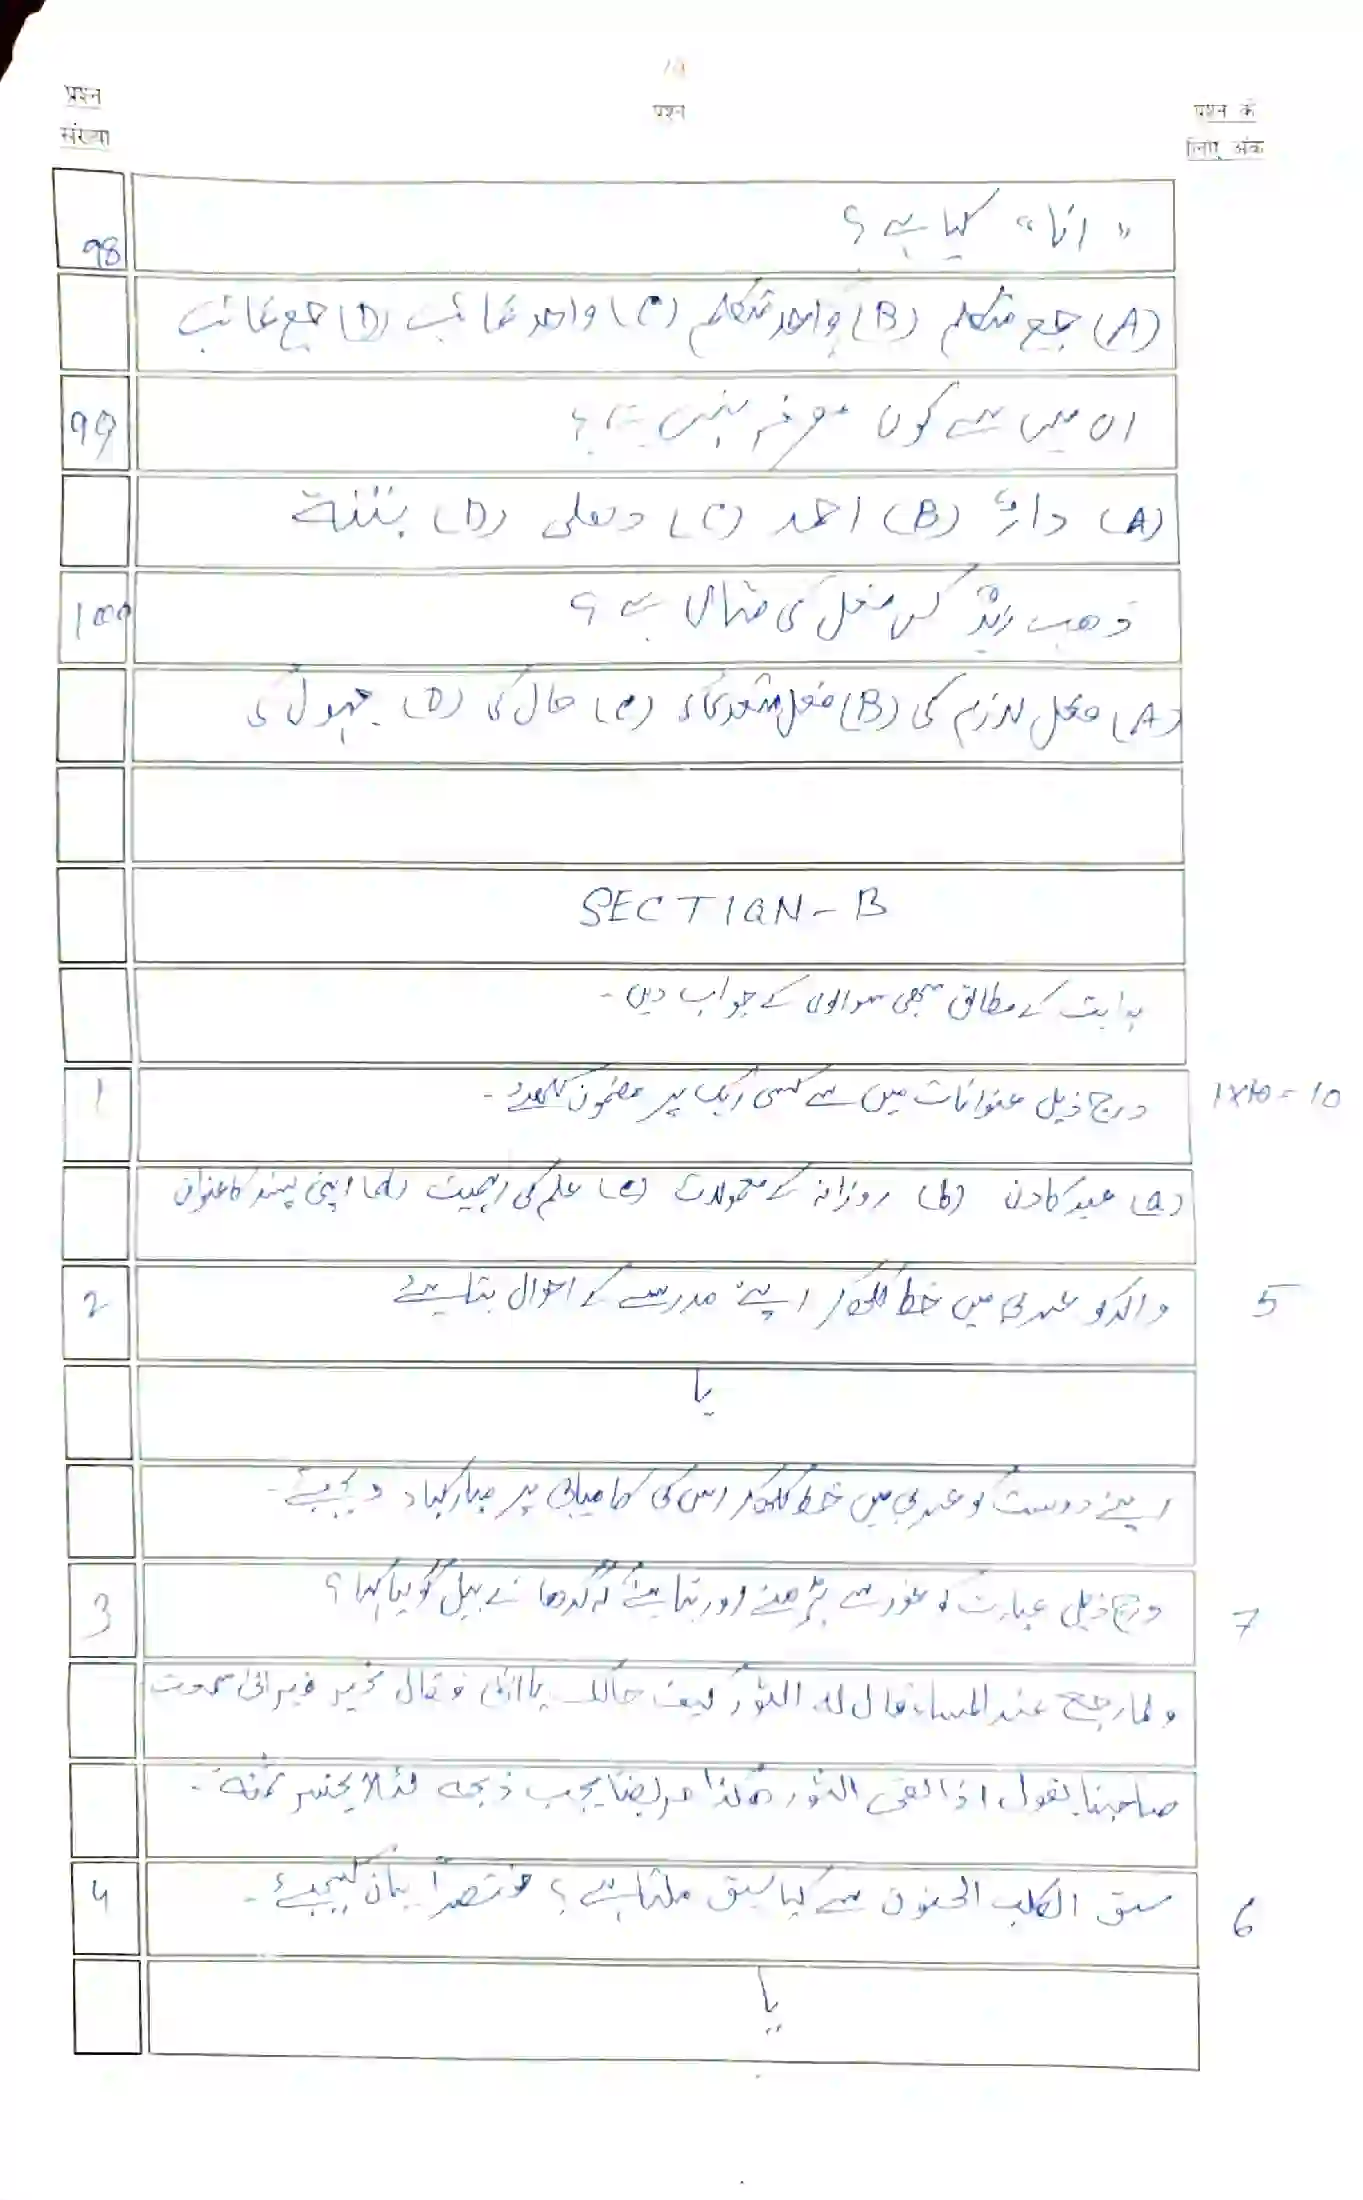 19
प्रश्न संख्या
प्रश्न
प्रश्न के लिए अंक
98 "انا" کیا ہے؟
(A) جمع متکلم (B) واحد متکلم (C) واحد غائب (D) جمع غائب
99 ان میں سے کون معرفہ نہیں ہے؟
(A) دارٌ (B) احمد (C) دھلی (D) بتنة
100 ذھب زیدٌ کس فعل کی مثال ہے؟
(A) فعل لازم کی (B) فعل متعدی کی (C) حال کی (D) جہول کی
SECTION-B
ہدایت کے مطابق سبھی سوالوں کے جواب دیں۔
1 درج ذیل عنوانات میں سے کسی ایک پر مضمون لکھئے۔ 1x10=10
(a) عید کا دن (b) روزانہ کے معمولات (c) علم کی اہمیت (d) اپنی پسند کا عنوان
2 والد کو عربی میں خط لکھ کر اپنے مدرسے کے احوال بتایئے 5
یا
اپنے دوست کو عربی میں خط لکھ کر اس کی کامیابی پر مبارکباد دیجیئے۔
3 درج ذیل عبارت کو غور سے پڑھئے اور بتایئے کہ گدھا نے بیل کو کیا کہا؟ 7
ولما رجع عند المساء قال له الثور کیف حالک یا اخی فقال بخیر غیر انی سمعت
صاحبنا یقول اذا بقی الثور ھکذا مریضا یجب ذبحه لئلا یخسر ثمنه۔
4 سبق الکلب الحنون سے کیا سبق ملتا ہے؟ مختصراً بیان کیجیئے۔ 6
یا